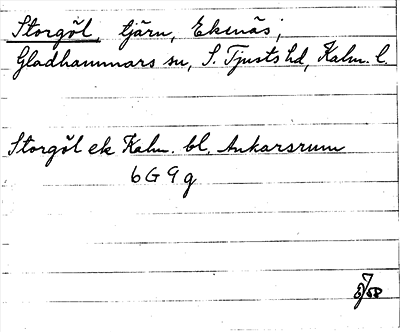 Storgöl, tjärn, Ekenäs,
Gladhammars sn, S. Tjusts hd, Kalm. l.
Storgöl ek Kalm. bl, Ankarsrum
6 G 9 g